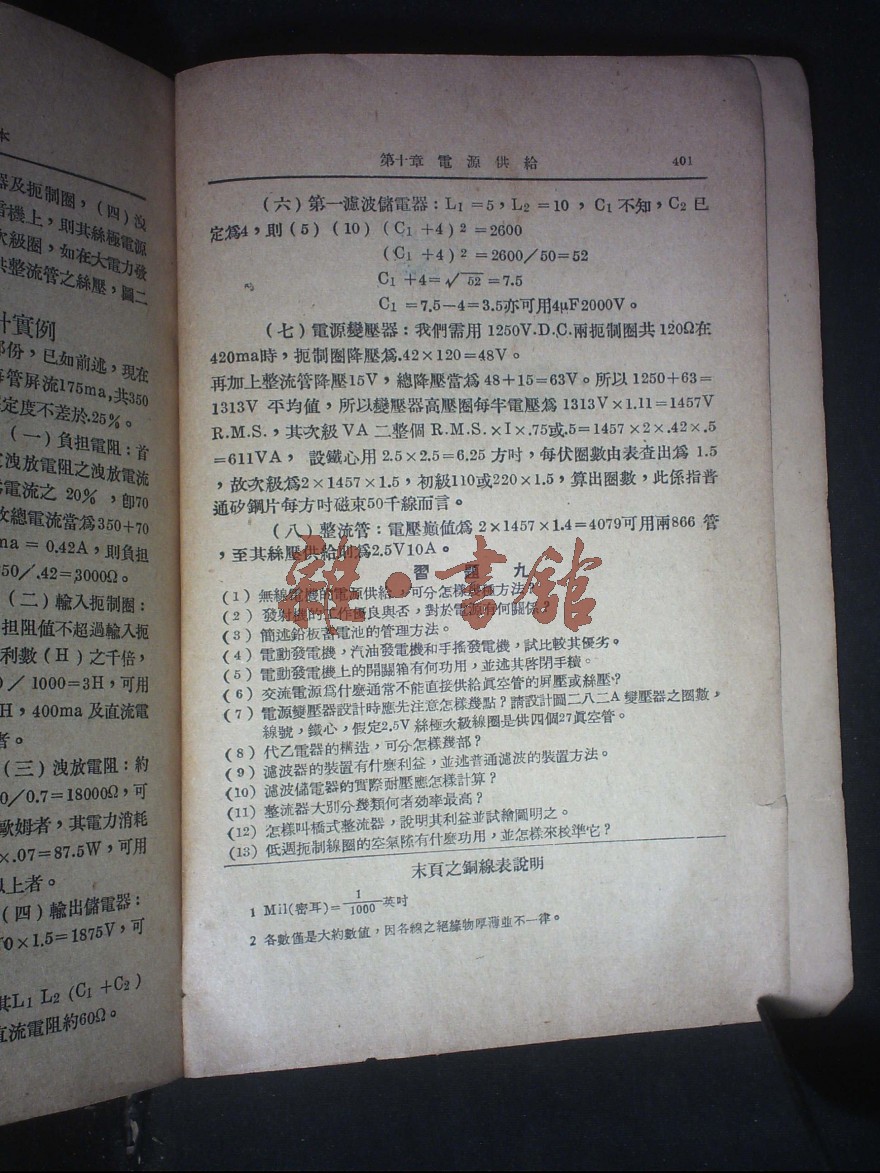 本
器及扼制圈，(四)洩
音機上，則其絲極電源
次級圈，如在大電力發
供整流管之絲壓，圖二
計實例
部份，已如前述，現在
每管屏流175ma,共350
定度不差於.25%。
(一)負担電阻：首
洩放電阻之洩放電流
電流之 20%，卽70
故總電流當爲350+70
ma = 0.42A，則負担
50/.42=3000Ω。
(二)輸入扼制圈：
担阻值不超過輸入扼
利數(H)之千倍，
0/1000=3H，可用
H，400ma 及直流電
者。
(三)洩放電阻：約
0/0.7=18000Ω，可
歐姆者，其電力消耗
×.07=87.5W，可用
以上者。
(四)輸出儲電器：
0×1.5=1875V，可
其L1 L2 (C1 +C2)
直流電阻約60Ω。
第十章 電源供給 401
(六)第一濾波儲電器：L1 =5，L2 =10，C1 不知，C2 已
定爲4，則(5)(10)(C1 +4)2 =2600
(C1 +4)2 =2600/50=52
C1 +4=√52=7.5
C1 =7.5—4=3.5亦可用4μF2000V。
(七)電源變壓器：我們需用 1250V.D.C.兩扼制圈共 120Ω在
420ma時，扼制圈降壓爲.42×120=48V。
再加上整流管降壓15V，總降壓當爲 48+15=63V。所以 1250+63=
1313V 平均值，所以變壓器高壓圈每半電壓爲 1313V×1.11=1457V
R.M.S.，其次級 VA 二整個 R.M.S.×I×.75或.5=1457×2×.42×.5
=611VA，設鐵心用 2.5×2.5=6.25 方吋，每伏圈數由表查出爲 1.5
，故次級爲2×1457×1.5，初級110或220×1.5，算出圈數，此係指普
通矽鋼片每方吋磁束50千線而言。
(八)整流管：電壓巓値爲 2×1457×1.4=4079可用兩866 管
，至其絲壓供給則爲2.5V10A。
雜·書館
習題九
(1) 無線電機的電源供給，可分怎樣幾種方法？
(2) 發射機的工作優良與否，對於電源有何關係？
(3) 簡述鉛板蓄電池的管理方法。
(4) 電動發電機，汽油發電機和手搖發電機，試比較其優劣。
(5) 電動發電機上的開關箱有何功用，並述其啓閉手續。
(6) 交流電源爲什麼通常不能直接供給眞空管的屛壓或絲壓？
(7) 電源變壓器設計時應先注意怎樣幾點？請設計圖二八三A 變壓器之圈數，
線號，鐵心，假定2.5V 絲極次級線圈是供四個27眞空管。
(8) 代乙電器的構造，可分怎樣幾部？
(9) 濾波器的裝置有什麼利益，並述普通濾波的裝置方法。
(10) 濾波儲電器的實際耐壓應怎樣計算？
(11) 整流器大別分幾類何者效率最高？
(12) 怎樣叫橋式整流器，說明其利益並試繪圖明之。
(13) 低週扼制線圈的空氣隙有什麼功用，並怎樣來校準它？
末頁之銅線表說明
1 Mil(密耳)=1/1000英吋
2 各數僅是大約數値，因各線之絕緣物厚薄並不一律。